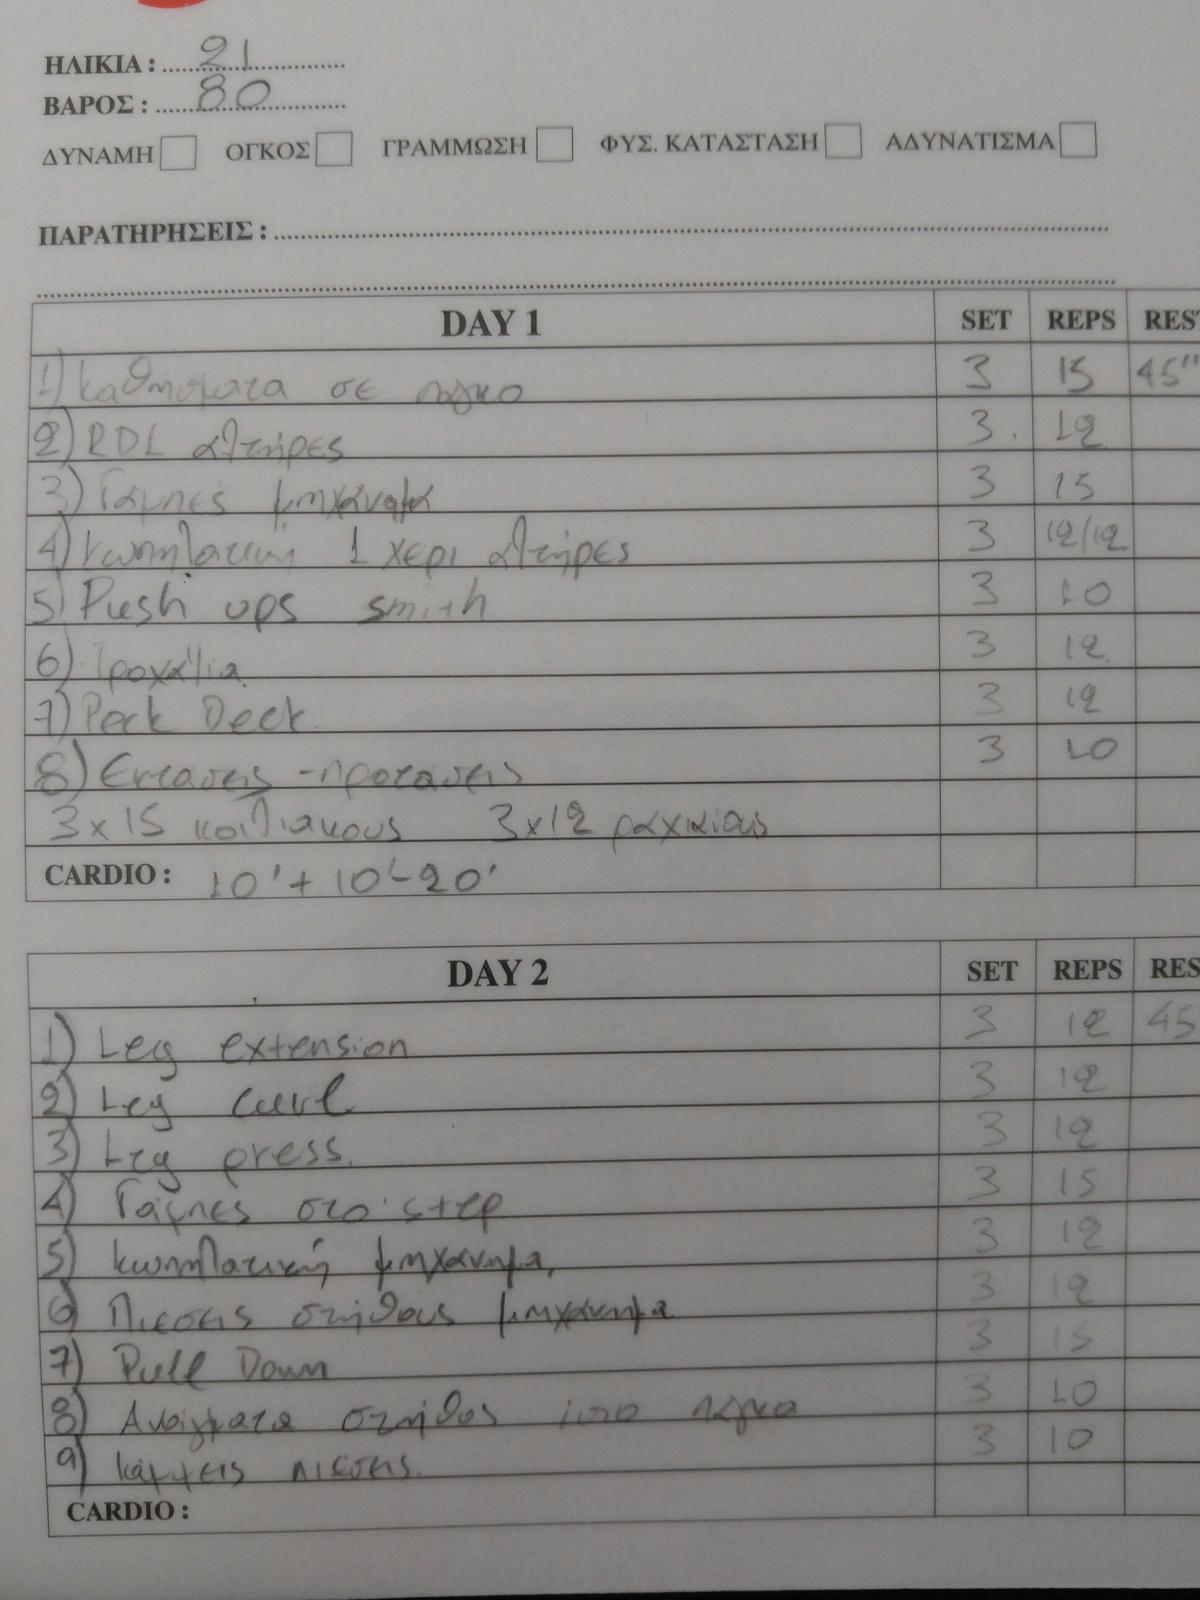 ΗΛΙΚΙΑ : 21
ΒΑΡΟΣ : 80
ΔΥΝΑΜΗ ΟΓΚΟΣ ΓΡΑΜΜΩΣΗ ΦΥΣ. ΚΑΤΑΣΤΑΣΗ ΑΔΥΝΑΤΙΣΜΑ
ΠΑΡΑΤΗΡΗΣΕΙΣ :
DAY 1 SET REPS REST
1) καθησματα σε παγκο 3 15 45"
2) RDL αλτήρες 3 12
3) Γάμπες μηχάνημα 3 15
4) κωπηλατική 1 χερι αλτήρες 3 12/12
5) Push ups smith 3 10
6) Τροχαλία 3 12
7) Peck Deck 3 12
8) Εκτάσεις - προτάσεις 3 10
3x15 κοιλιακους 3x12 ραχιαίους
CARDIO : 10' + 10'-20'
DAY 2 SET REPS RES
1) Leg extension 3 12 45
2) Leg Curl 3 12
3) Leg press. 3 12
4) Γάμπες στο step 3 15
5) κωπηλατική μηχάνημα, 3 12
6) Πιεσεις στήθους μηχάνημα 3 12
7) Pull Down 3 15
8) Ανοίγματα στήθος ίσιο παγκο 3 10
9) κάμψεις πιέσεις. 3 10
CARDIO :